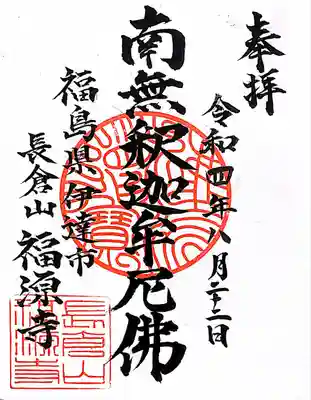 奉拝
令和四年八月二十二日
南無釈迦牟尼佛
福島県伊達市
長倉山
福源寺
長倉山
福源寺